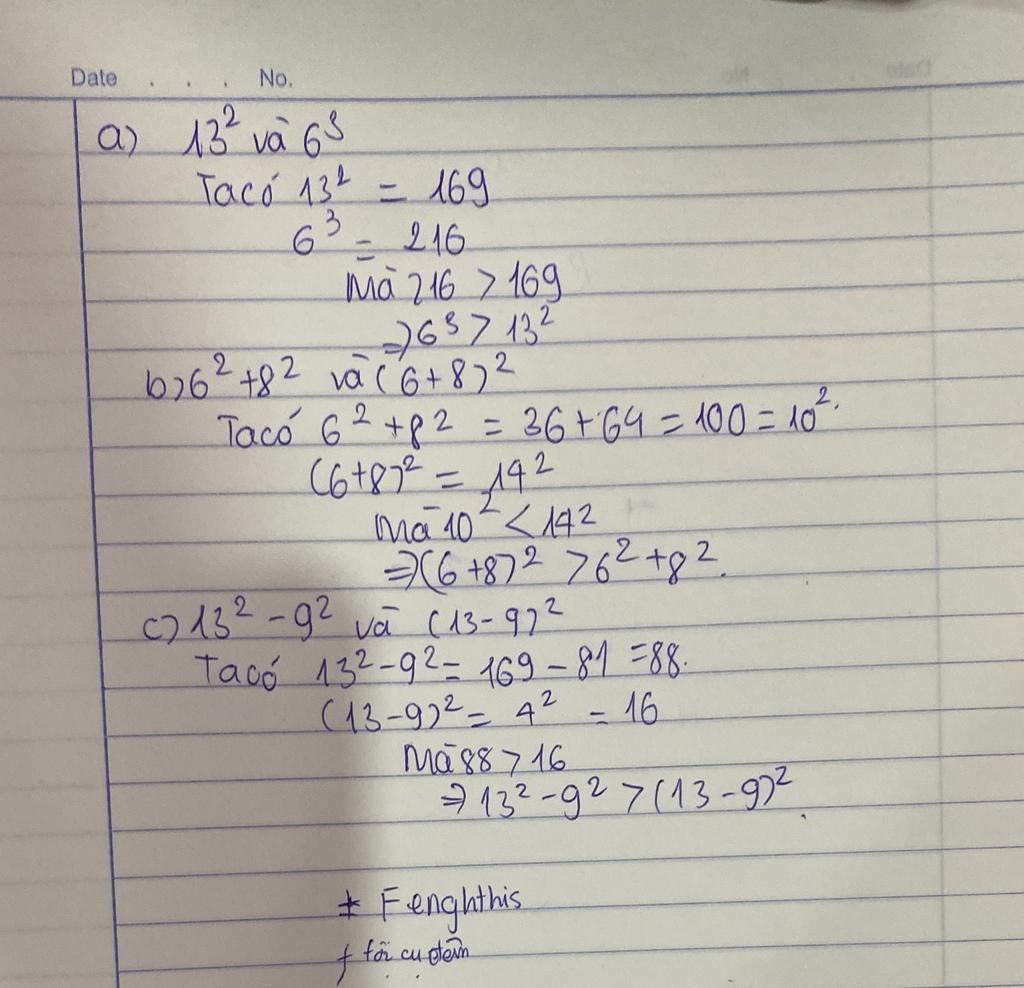 Date . . . No.
a) 13² và 6³
Ta có 13² = 169
6³ = 216
Mà 216 > 169
⇒ 6³ > 13²
b) 6² + 8² và (6+8)²
Ta có 6² + 8² = 36 + 64 = 100 = 10².
(6+8)² = 14²
Mà 10² < 14²
⇒ (6+8)² > 6² + 8².
c) 13² - 9² và (13-9)²
Ta có 13² - 9² = 169 - 81 = 88.
(13-9)² = 4² = 16
Mà 88 > 16
⇒ 13² - 9² > (13-9)².
* Fenghthis